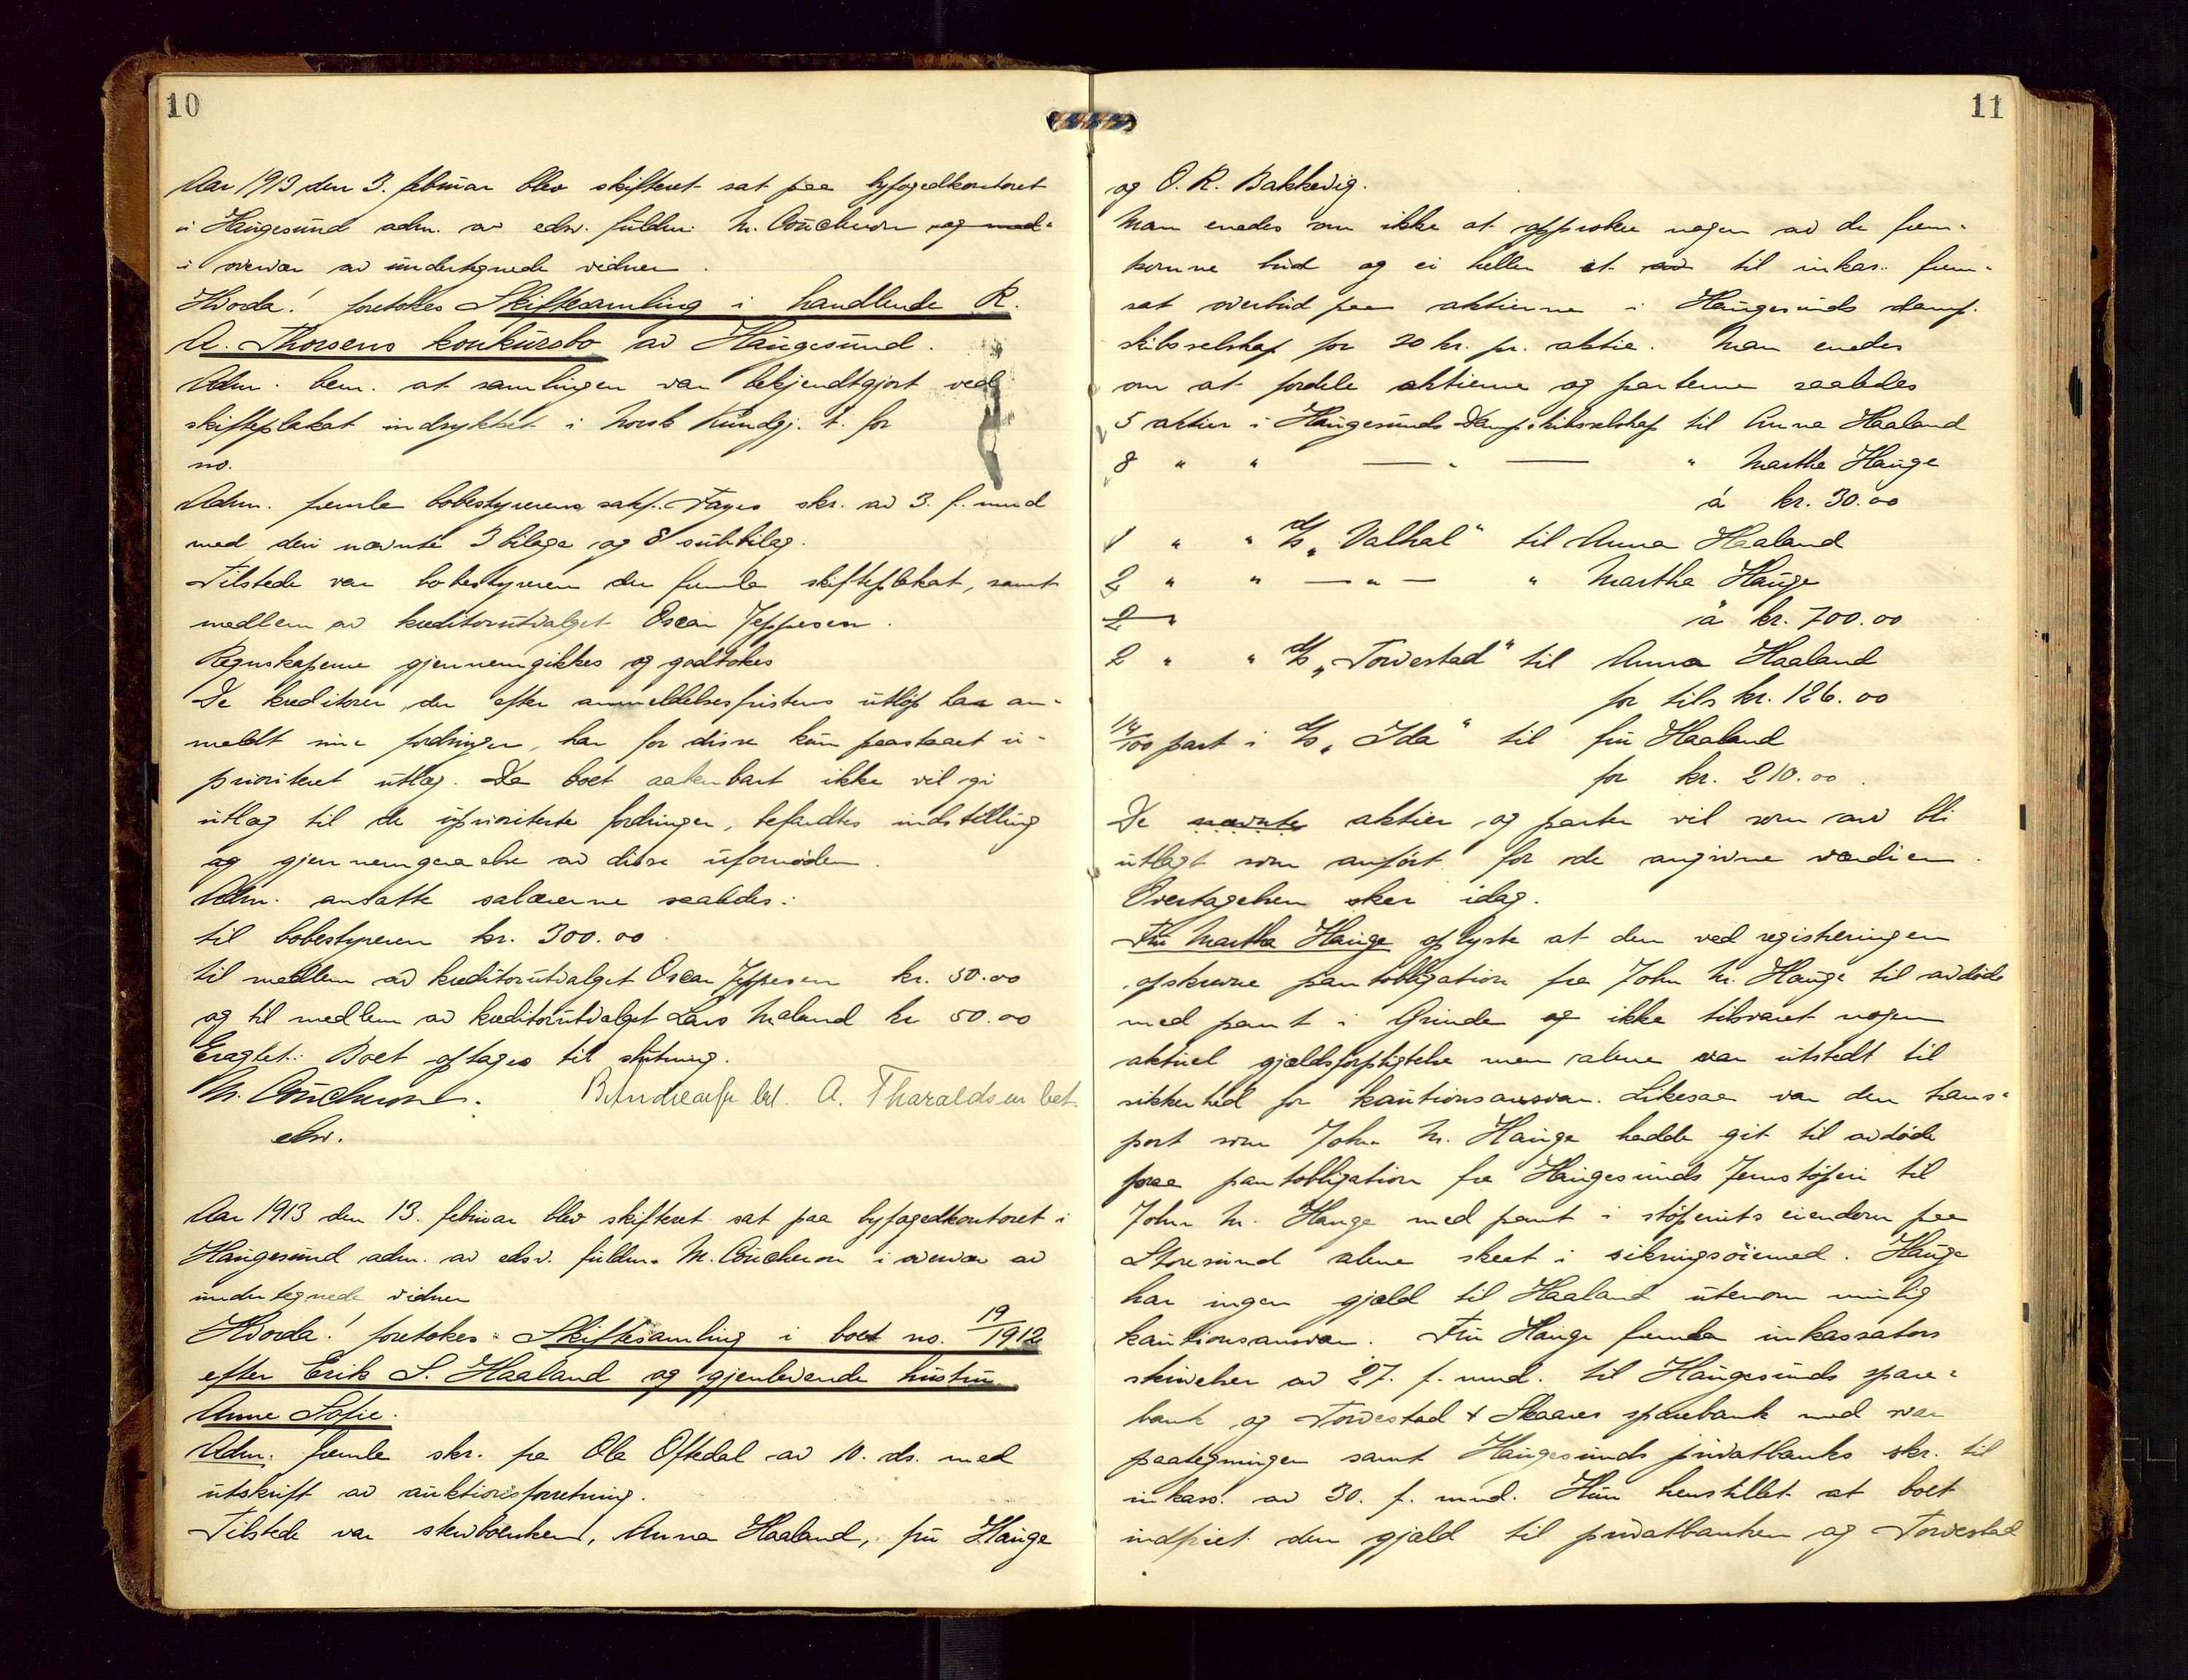 10
Aar 1913 den 3. februar blev skifteret sat paa byfogedkontoret
i Haugesund adm. av edsv. fuldm. M. Coucheron og med-
i overvær av undertegnede vidner.
Hvorda! foretokes Skiftesamling i handlende R.
A. Thorsens konkursbo av Haugesund.
Adm. bem. at samlingen var bekjendtgjort ved
skifteplakat indrykket i Norsk Kundgj. t. for
no.
Adm. fremla bobestyrerens sakf. Fayes skr. av 3. f. mnd
med deri nævnte 3 bilage og 8 subbilag.
Tilstede var bobestyreren der fremla skifteplakat, samt
medlem av kreditorutvalget Oscar Jeppesen.
Regnskaperne gjennemgikkes og godtokes
De kreditorer, der efter anmeldelsesfristens utløp har an-
meldt sine fordringer, har for disse kun paastaaet u-
prioritert utlæg. Da boet aabenbart ikke vil gi
utlæg til de uprioriterte fordringer, befandtes indstilling
og gjennemgaaelse av disse ufornøden.
Adm. ansatte salærerne saaledes:
til bobestyreren kr. 300.00
til medlem av kreditorutvalget Oscar Jeppesen kr. 50.00
og til medlem av kreditorutvalget Lars Maland kr 50.00
Eragtet: Boet optages til slutning.
M. Coucheron. B. Andreasen bet. A. Tharaldsen bet
edsv.
Aar 1913 den 13. februar blev skifteret sat paa byfogedkontoret i
Haugesund adm. av edsv. fuldm. M. Coucheron i overvær av
undertegnede vidner
Hvorda! foretokes: Skiftesamling i boet no. 19/1912
efter Erik S. Haaland og gjenlevende hustru
Anne Sofie.
Adm. fremla skr. fra Ole Oftedal av 10. ds. med
utskrift av auktionsforretning.
Tilstede var skiwboenken, Anna Haaland, fru Hauge
11
og O. R. Bakkevig.
Man enedes om ikke at approbere nogen av de frem-
komne bud og ei heller et av til inkas. frem-
sat overbud paa aktierne i Haugesunds damp-
skibsselskap for 20 kr. pr. aktie. Man enedes
om at fordele aktierne og parterne saaledes
5 aktier i Haugesunds Dampskibsselskap til Anna Haaland
8 " " — " — " Marthe Hauge
á kr. 30.00
1 " " d/s „Valhal" til Anna Haaland
2 " " — " — " Marthe Hauge
2 — á kr. 700.00
2 " " d/s „Torvestad" til Anna Haaland
for tils kr. 126.00
14/100 part i d/s „Ida" til fru Haaland
for kr. 210.00.
De nævnte aktier og parter vil som arv bli
utlagt som anført for de angivne værdier.
Overtagelsen sker idag.
Fru Marthe Hauge oplyste at den ved registreringen
opskrevne pantobligation fra John M. Hauge til avdøde
med pant i Grinde og ikke tilsvaret nogen
aktuel gjældsforpligtelse men alene var utstedt til
sikkerhed for kautionsansvar. Likesaa var den trans-
port som John M. Hauge hadde git til avdøde
paa pantobligation fra Haugesunds Jernstøperi til
John M. Hauge med pant i støperiets eiendom paa
Storesund alene skeet i sikringsøiemed. Hauge
har ingen gjæld til Haaland utenom mulig
kautionsansvar. Fru Hauge fremla inkassators
skrivelser av 27. f. mnd. til Haugesunds spare-
bank og Torvestad & Skaares sparebank med svar
paategninger samt Haugesunds privatbanks skr. til
inkass. av 30. f. mnd. Hun henstillet at boet
indfriet den gjæld til privatbanken og Torvestad